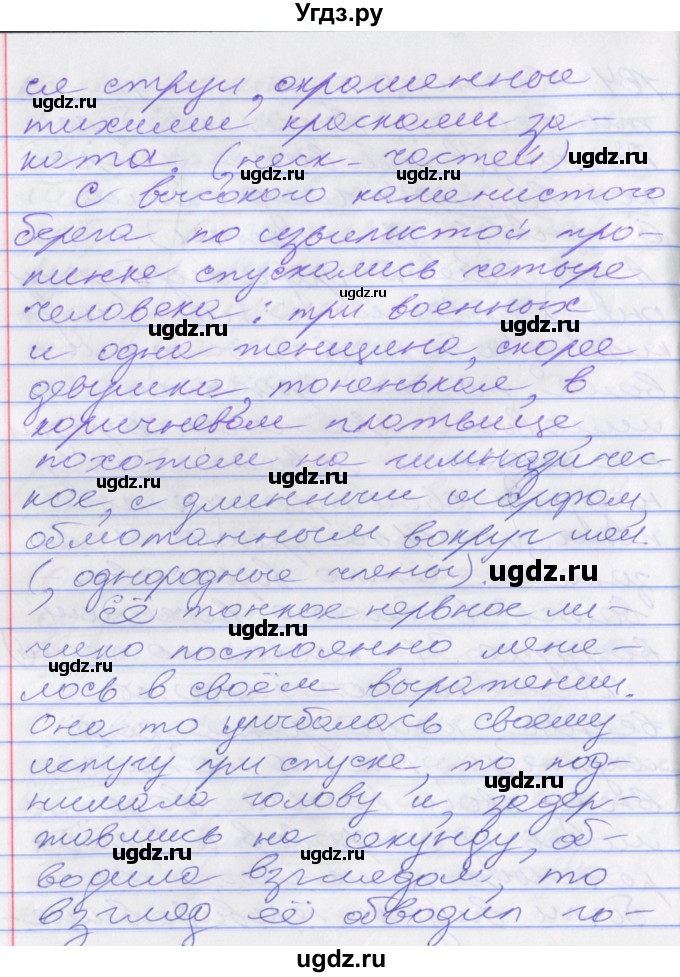 Угдз.ру
ся струи, окрашенные
тихими красками за-
ката. (неск. частей)
С высокого каменистого
берега по извилистой тро-
пинке спускались четыре
человека: три военных
и одна женщина, скорее
девушка, тоненькая, в
коричневом платьице,
похожем на гимназичес-
кое, с длинным шарфом,
обмотанным вокруг шеи.
(, однородные члены).
Её тонкое нервное ли-
чико постоянно меня-
лось в своём выражении.
Она то улыбалась своему
испугу при спуске, то под-
нимала голову и, задер-
жавшись на секунду, об-
водила взглядом, то
взгляд её обводил го-
ugdz.ru